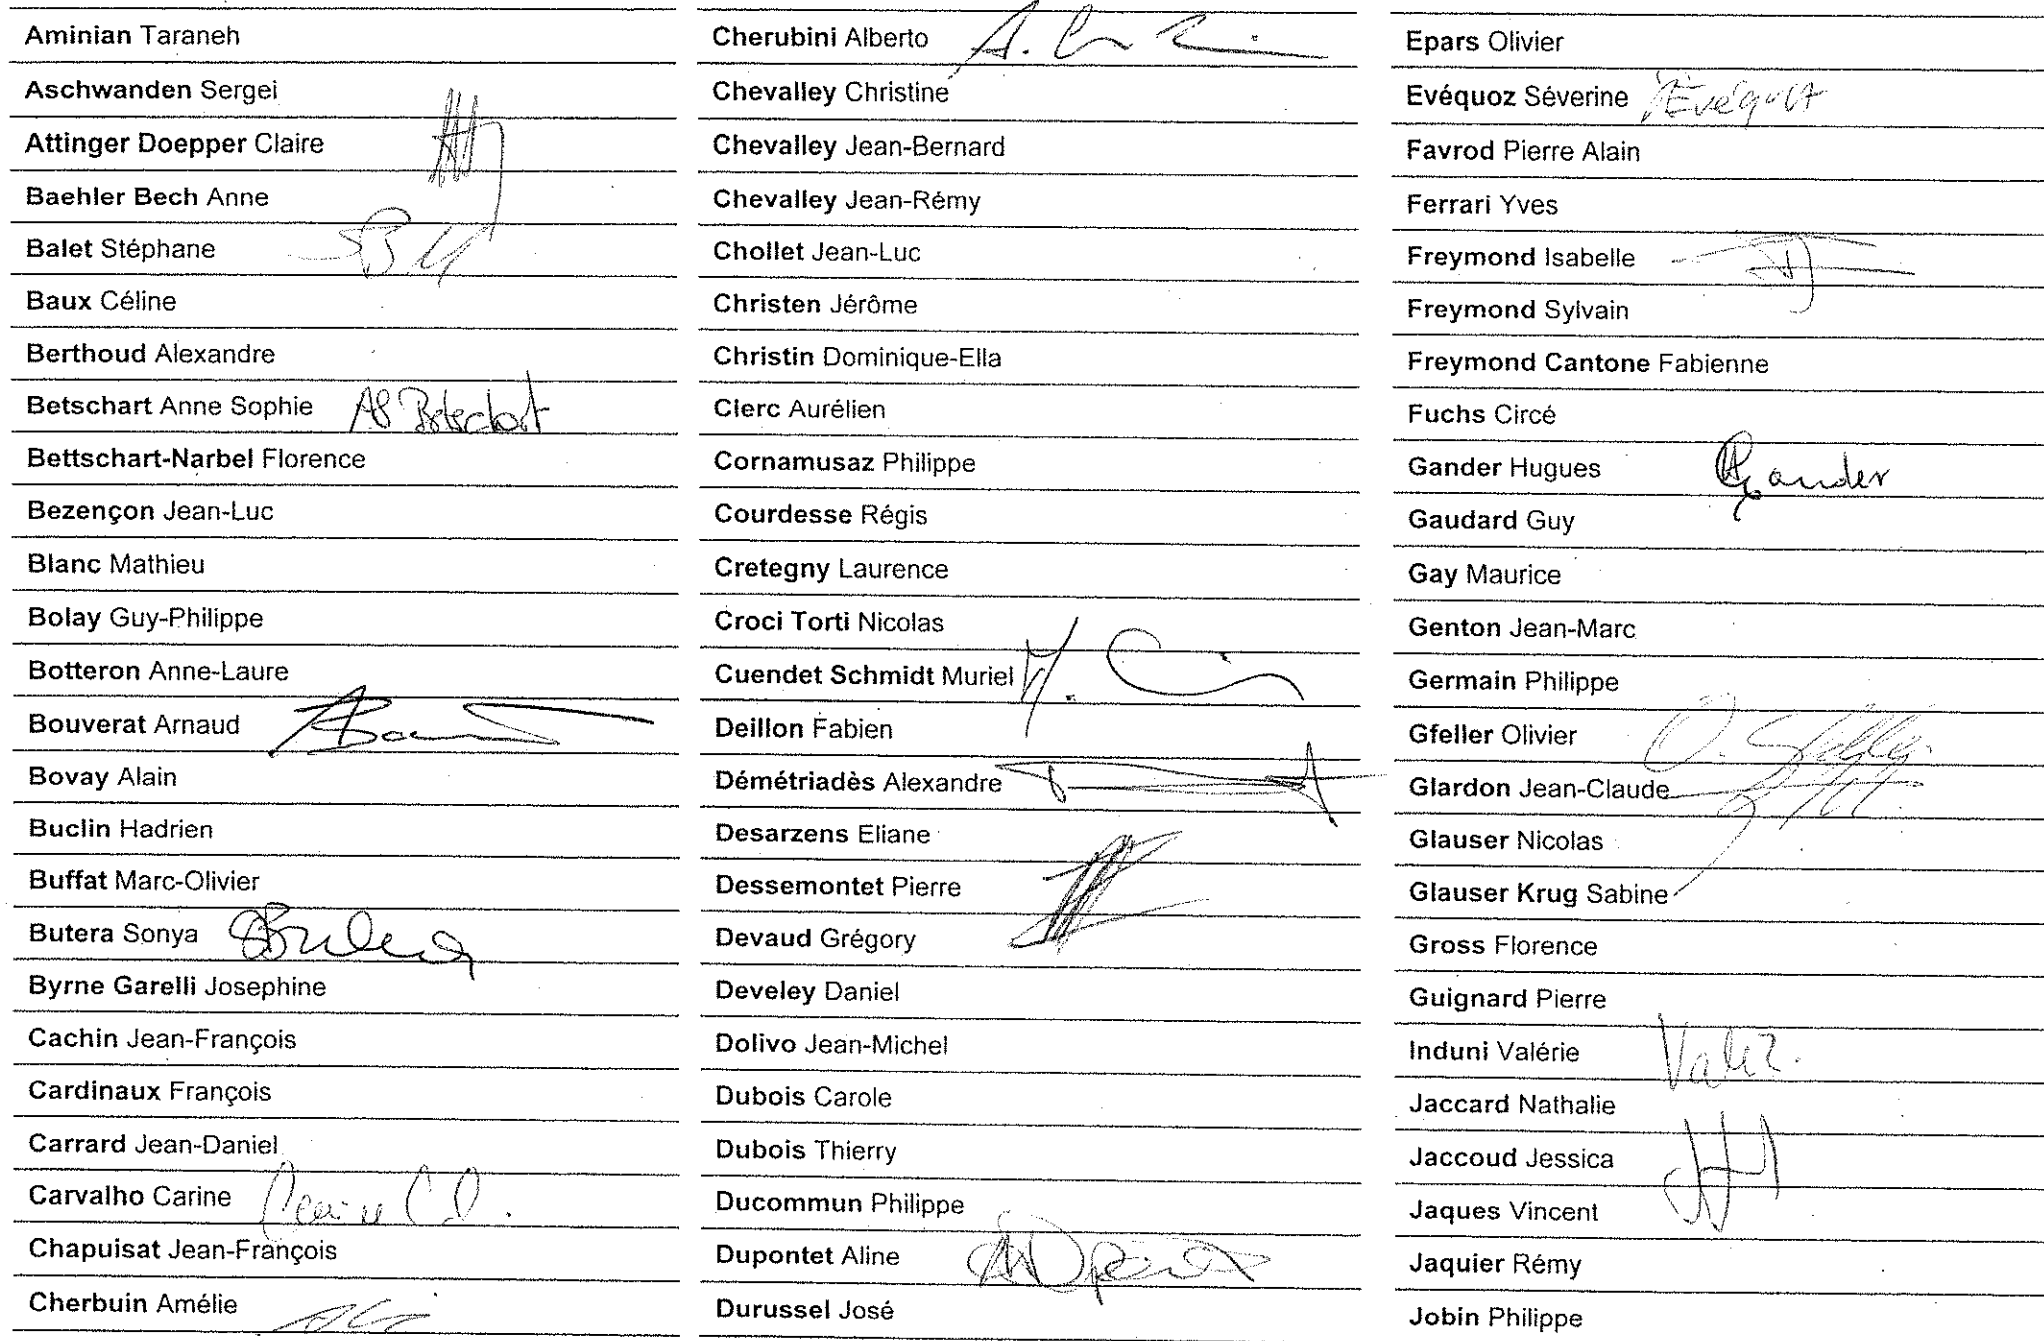 Aminian Taraneh
Aschwanden Sergei
Attinger Doepper Claire
Baehler Bech Anne
Balet Stéphane
Baux Céline
Berthoud Alexandre
Betschart Anne Sophie AS Betschart
Bettschart-Narbel Florence
Bezençon Jean-Luc
Blanc Mathieu
Bolay Guy-Philippe
Botteron Anne-Laure
Bouverat Arnaud
Bovay Alain
Buclin Hadrien
Buffat Marc-Olivier
Butera Sonya
Byrne Garelli Josephine
Cachin Jean-François
Cardinaux François
Carrard Jean-Daniel
Carvalho Carine
Chapuisat Jean-François
Cherbuin Amélie
Cherubini Alberto
Chevalley Christine
Chevalley Jean-Bernard
Chevalley Jean-Rémy
Chollet Jean-Luc
Christen Jérôme
Christin Dominique-Ella
Clerc Aurélien
Cornamusaz Philippe
Courdesse Régis
Cretegny Laurence
Croci Torti Nicolas
Cuendet Schmidt Muriel
Deillon Fabien
Démétriadès Alexandre
Desarzens Eliane
Dessemontet Pierre
Devaud Grégory
Develey Daniel
Dolivo Jean-Michel
Dubois Carole
Dubois Thierry
Ducommun Philippe
Dupontet Aline
Durussel José
Epars Olivier
Evéquoz Séverine Evéquoz
Favrod Pierre Alain
Ferrari Yves
Freymond Isabelle
Freymond Sylvain
Freymond Cantone Fabienne
Fuchs Circé
Gander Hugues Gander
Gaudard Guy
Gay Maurice
Genton Jean-Marc
Germain Philippe
Gfeller Olivier O. Gfeller
Glardon Jean-Claude
Glauser Nicolas
Glauser Krug Sabine
Gross Florence
Guignard Pierre
Induni Valérie
Jaccard Nathalie
Jaccoud Jessica
Jaques Vincent
Jaquier Rémy
Jobin Philippe